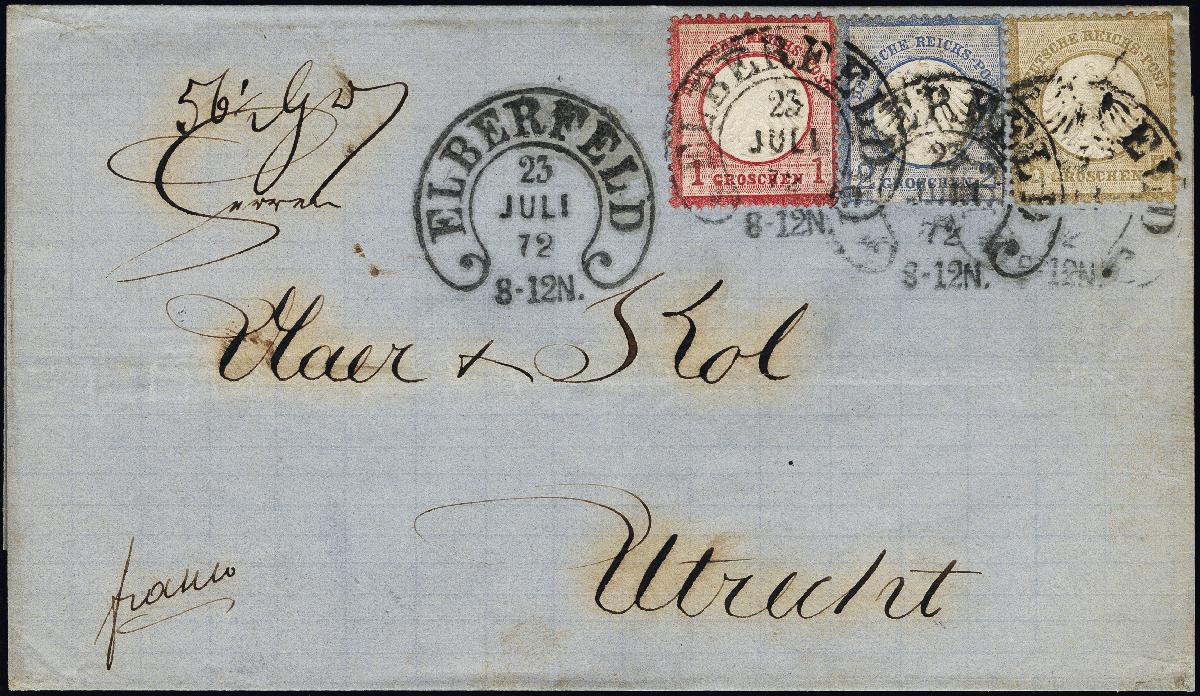 DEUTSCHE REICHS-POST
1 GROSCHEN 1
DEUTSCHE REICHS-POST
2 GROSCHEN 2
DEUTSCHE REICHS-POST
5 GROSCHEN 5
ELBERFELD
23
JULI
72
8-12N.
ELBERFELD
23
JULI
72
8-12N.
ELBERFELD
23
JULI
72
8-12N.
ELBERFELD
8-12N.
Herren
Vlaer & Kol
Utrecht
franco